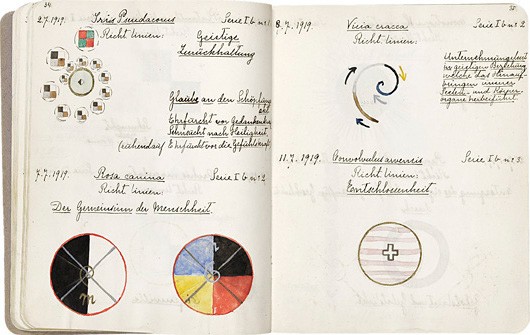 34.
2.7.1919. Iris Pseudacorus Serie I b nr 1.
Richt linien: Geistige
Zurückhaltung
Glaube an den Schöpfung
Ehrfurcht vor Gedanken
Sehnsucht nach Heiligkeit.
Ehrfurcht vor die Gefühlskraft
7.7.1919. Rosa canina Serie I b nr 2.
Richt linien:
Der Gemeinsinn der Menschheit.
m
35.
8.7.1919. Vicia cracca Serie I b nr 2
Richt linien:
Unternehmungslust
in geistigen Beziehung
welche das
innerer
Seelen- und Körper-
organe herbeiführt.
11.7.1919. Convolvulus arvensis Serie I b nr 3.
Richt linien:
Entschlossenheit